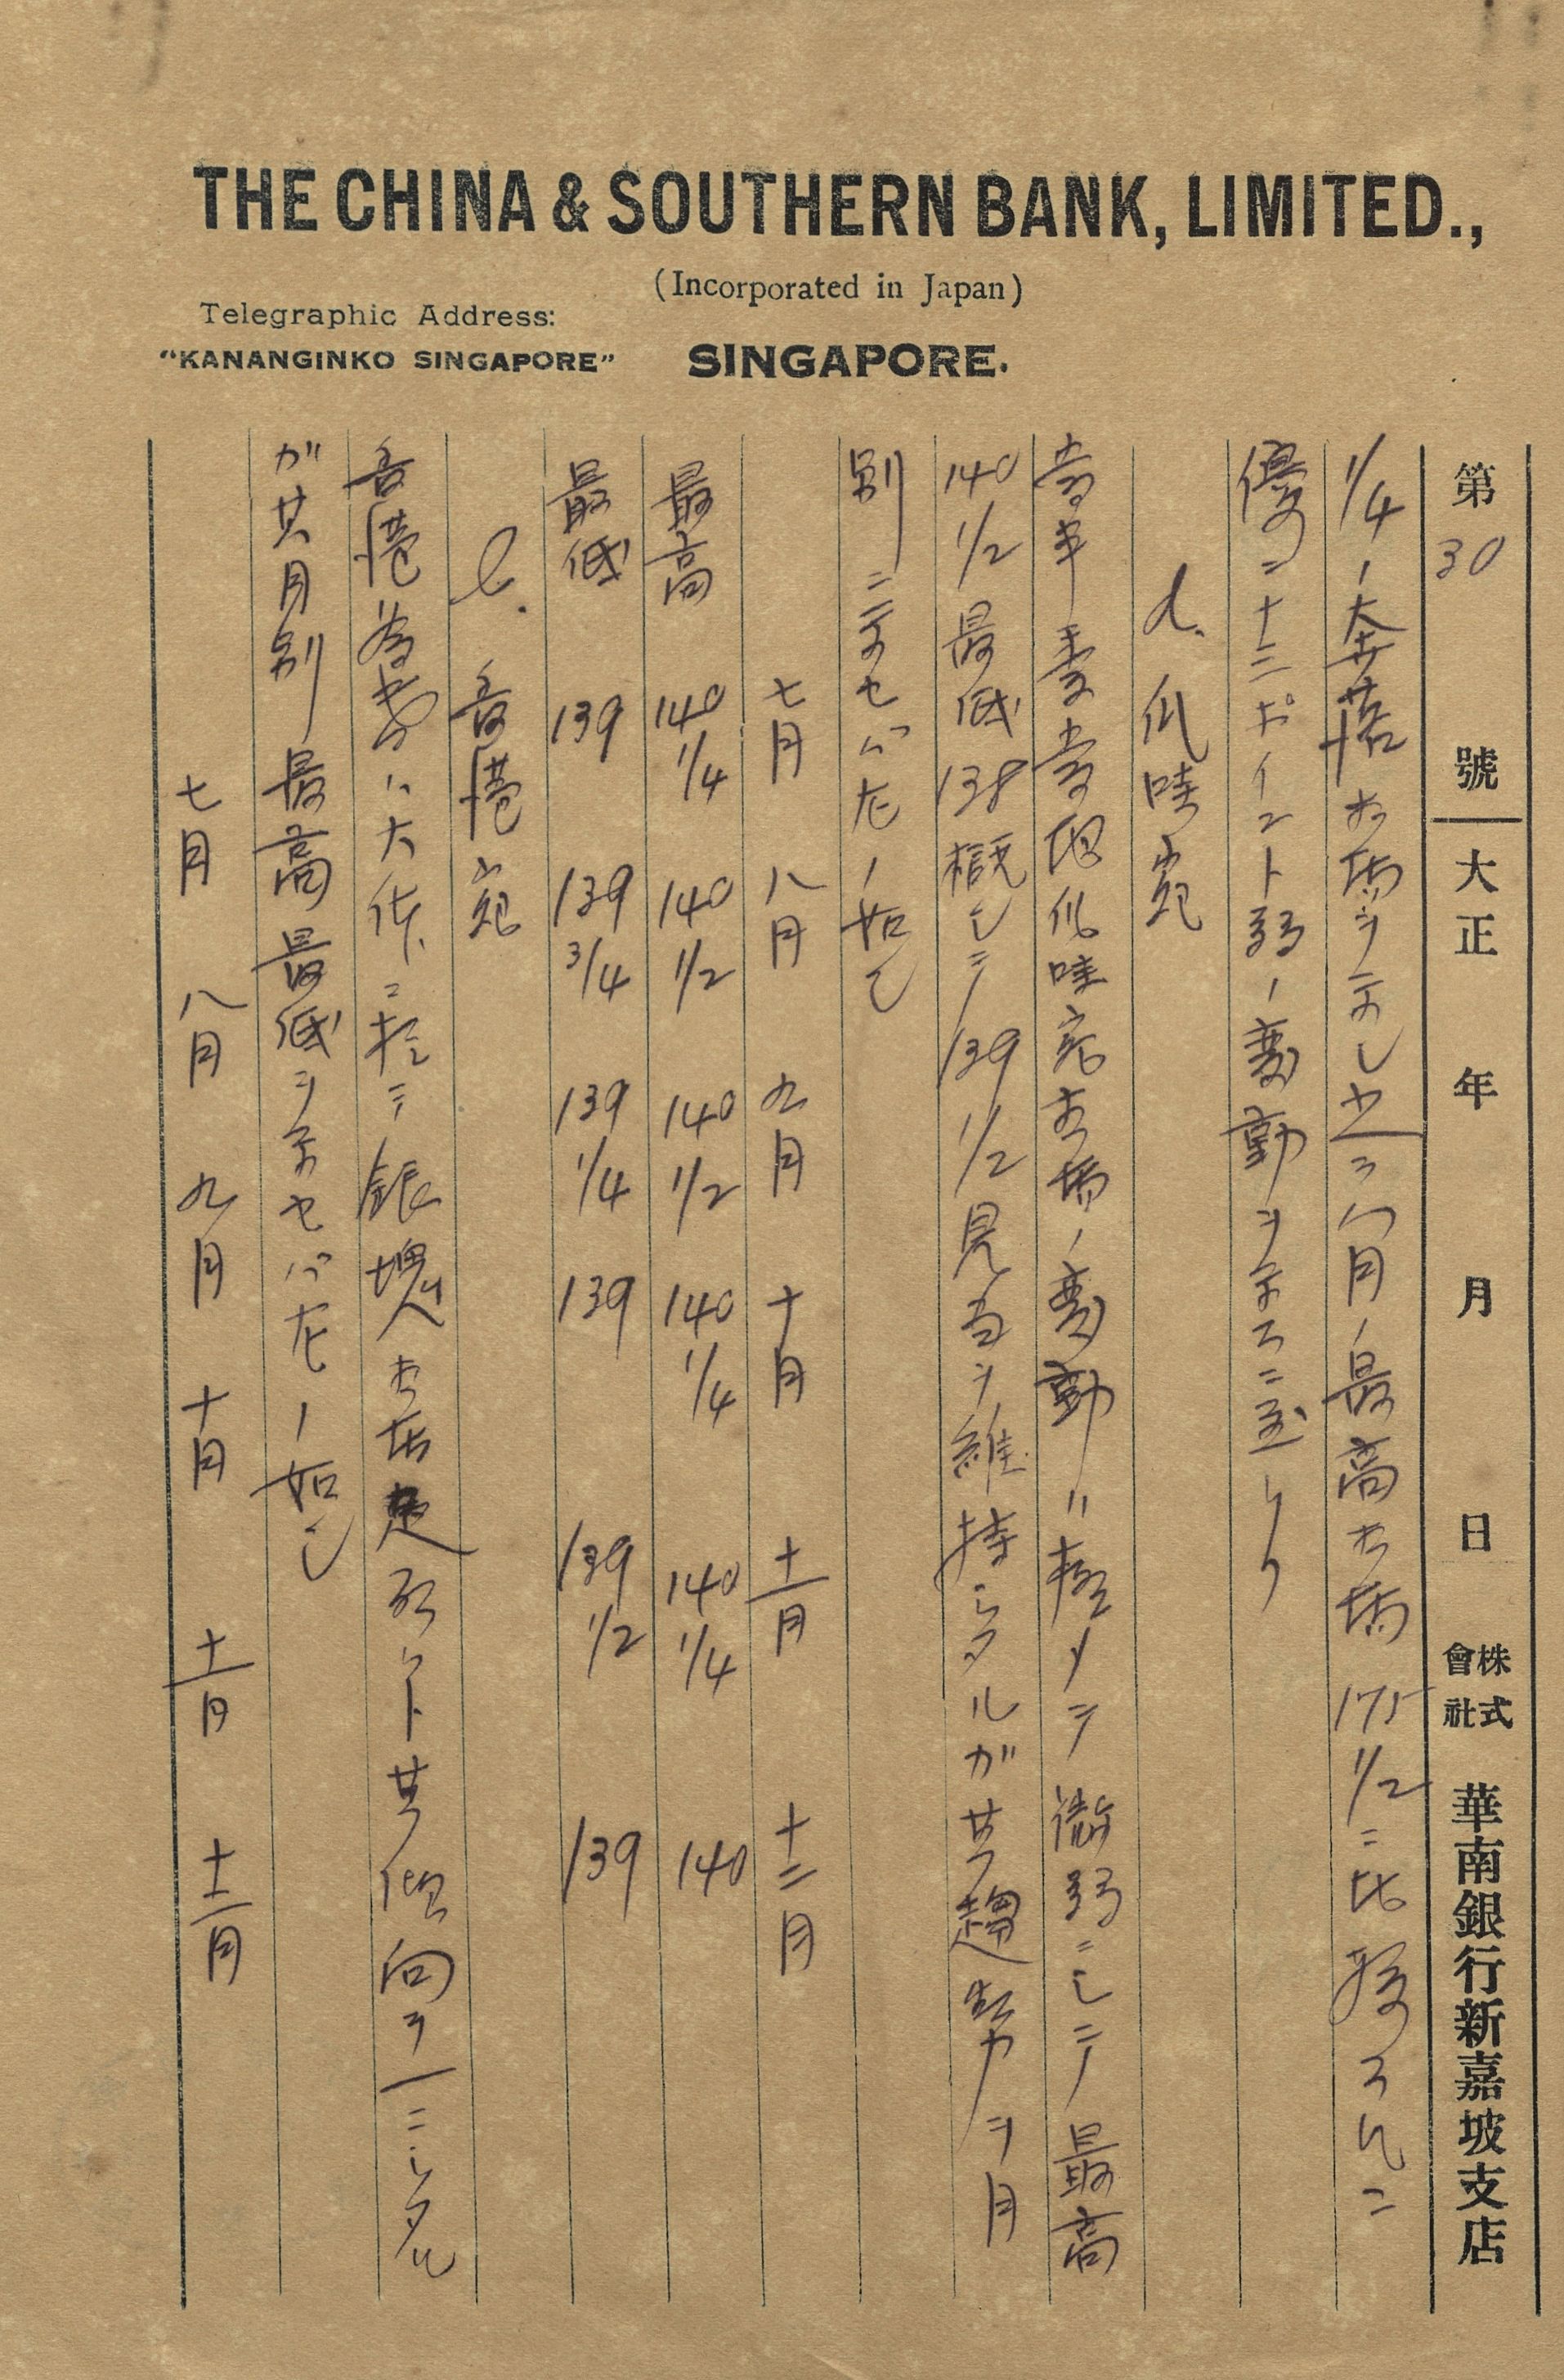 THE CHINA & SOUTHERN BANK, LIMITED.,
(Incorporated in Japan)
Telegraphic Address:
"KANANGINKO SINGAPORE"
SINGAPORE.
第30號 大正 年 月 日 株式會社 華南銀行新嘉坡支店
1/4ノ大奔落相場ヲ示シ之ヲ八月ノ最高相場175 1/2ニ比較スルニ
優ニ十三ポイント弱ノ變動ヲ示スニ至レリ
d. 爪哇宛
當半季當地爪哇宛相場ノ變動ハ極メテ微弱ニシテ最高
140 1/2 最低138 概シテ139 1/2見當ヲ維持シタルガ其趨勢ヲ月
別ニ示セバ左ノ如シ
七月 八月 九月 十月 十一月 十二月
最高 140 1/4 140 1/2 140 1/2 140 1/4 140 1/4 140
最低 139 139 3/4 139 1/4 139 139 1/2 139
e. 香港宛
香港為替ハ大体ニ於テ銀塊相場ト其傾向ヲ一ニシタル
ガ其月別最高最低ヲ示セバ左ノ如シ
七月 八月 九月 十月 十一月 十二月